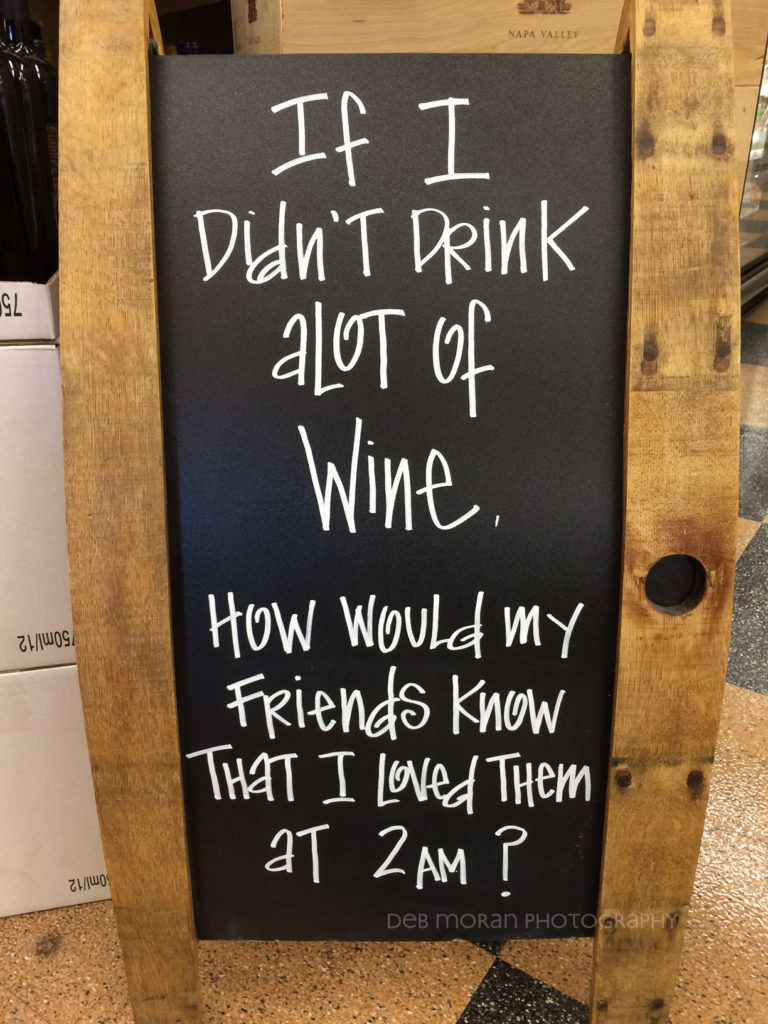 NAPA VALLEY
If I
Didn't Drink
alot of
Wine,
How would my
Friends know
That I Loved Them
at 2am?
750
750ml/12
750ml/12
DEB MORAN PHOTOGRAPHY